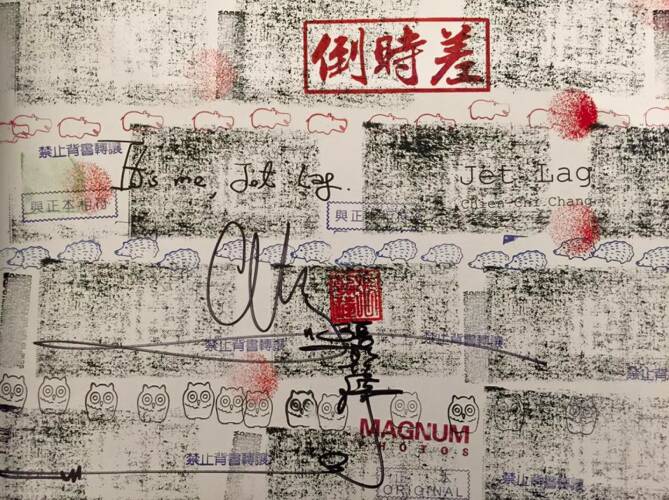 倒時差
禁止背書轉讓
It's me, Jet Lag.
Jet Lag
Chien-Chi Chang
與正本相符
與正本相符
禁止背書轉讓
禁止背書轉讓
禁止背書
MAGNUM
PHOTOS
禁止背書轉讓
禁止背書轉讓
正本
ORIGINAL